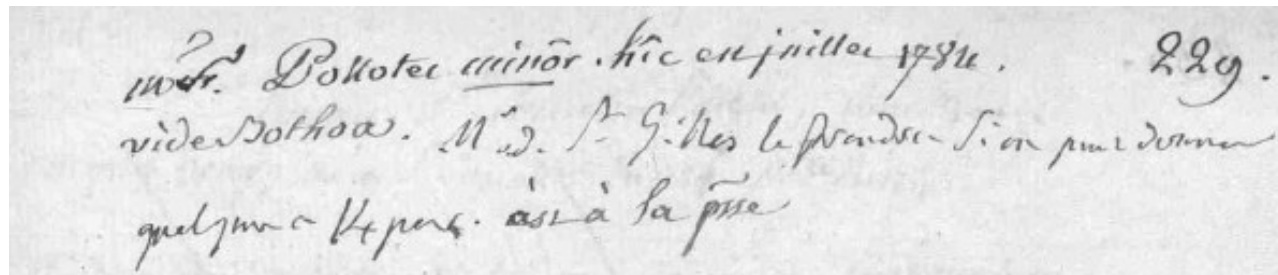 mr. Pollotec minôr. hîc en juillet 1784. 229.
vide Bothoa. Mr d. St Gilles le prendra Si on peut donner
quelqun a sa à la psse